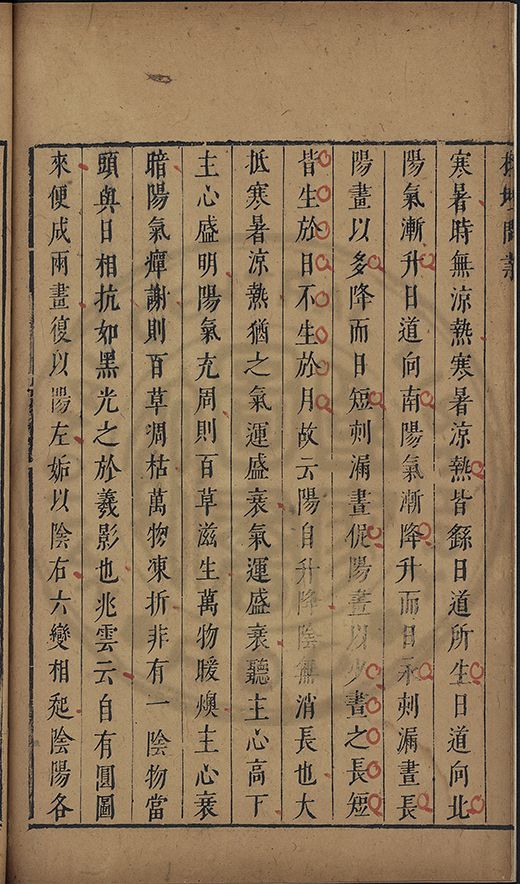 寒暑時無涼熱寒暑涼熱皆繇日道所生日道向北
陽氣漸升日道向南陽氣漸降升而日永刺漏晝長
陽畫以多降而日短刺漏晝促陽畫以少晝之長短
皆生於日不生於月故云陽自升降陰無消長也大
抵寒暑涼熱猶之氣運盛衰氣運盛衰聽主心高下
主心盛明陽氣充周則百草滋生萬物暖燠主心衰
暗陽氣癉謝則百草凋枯萬物凍折非有一陰物當
頭與日相抗如黑光之於羲影也兆雲云自有圓圖
來便成兩畫復以陽左姤以陰右六變相陰陽各